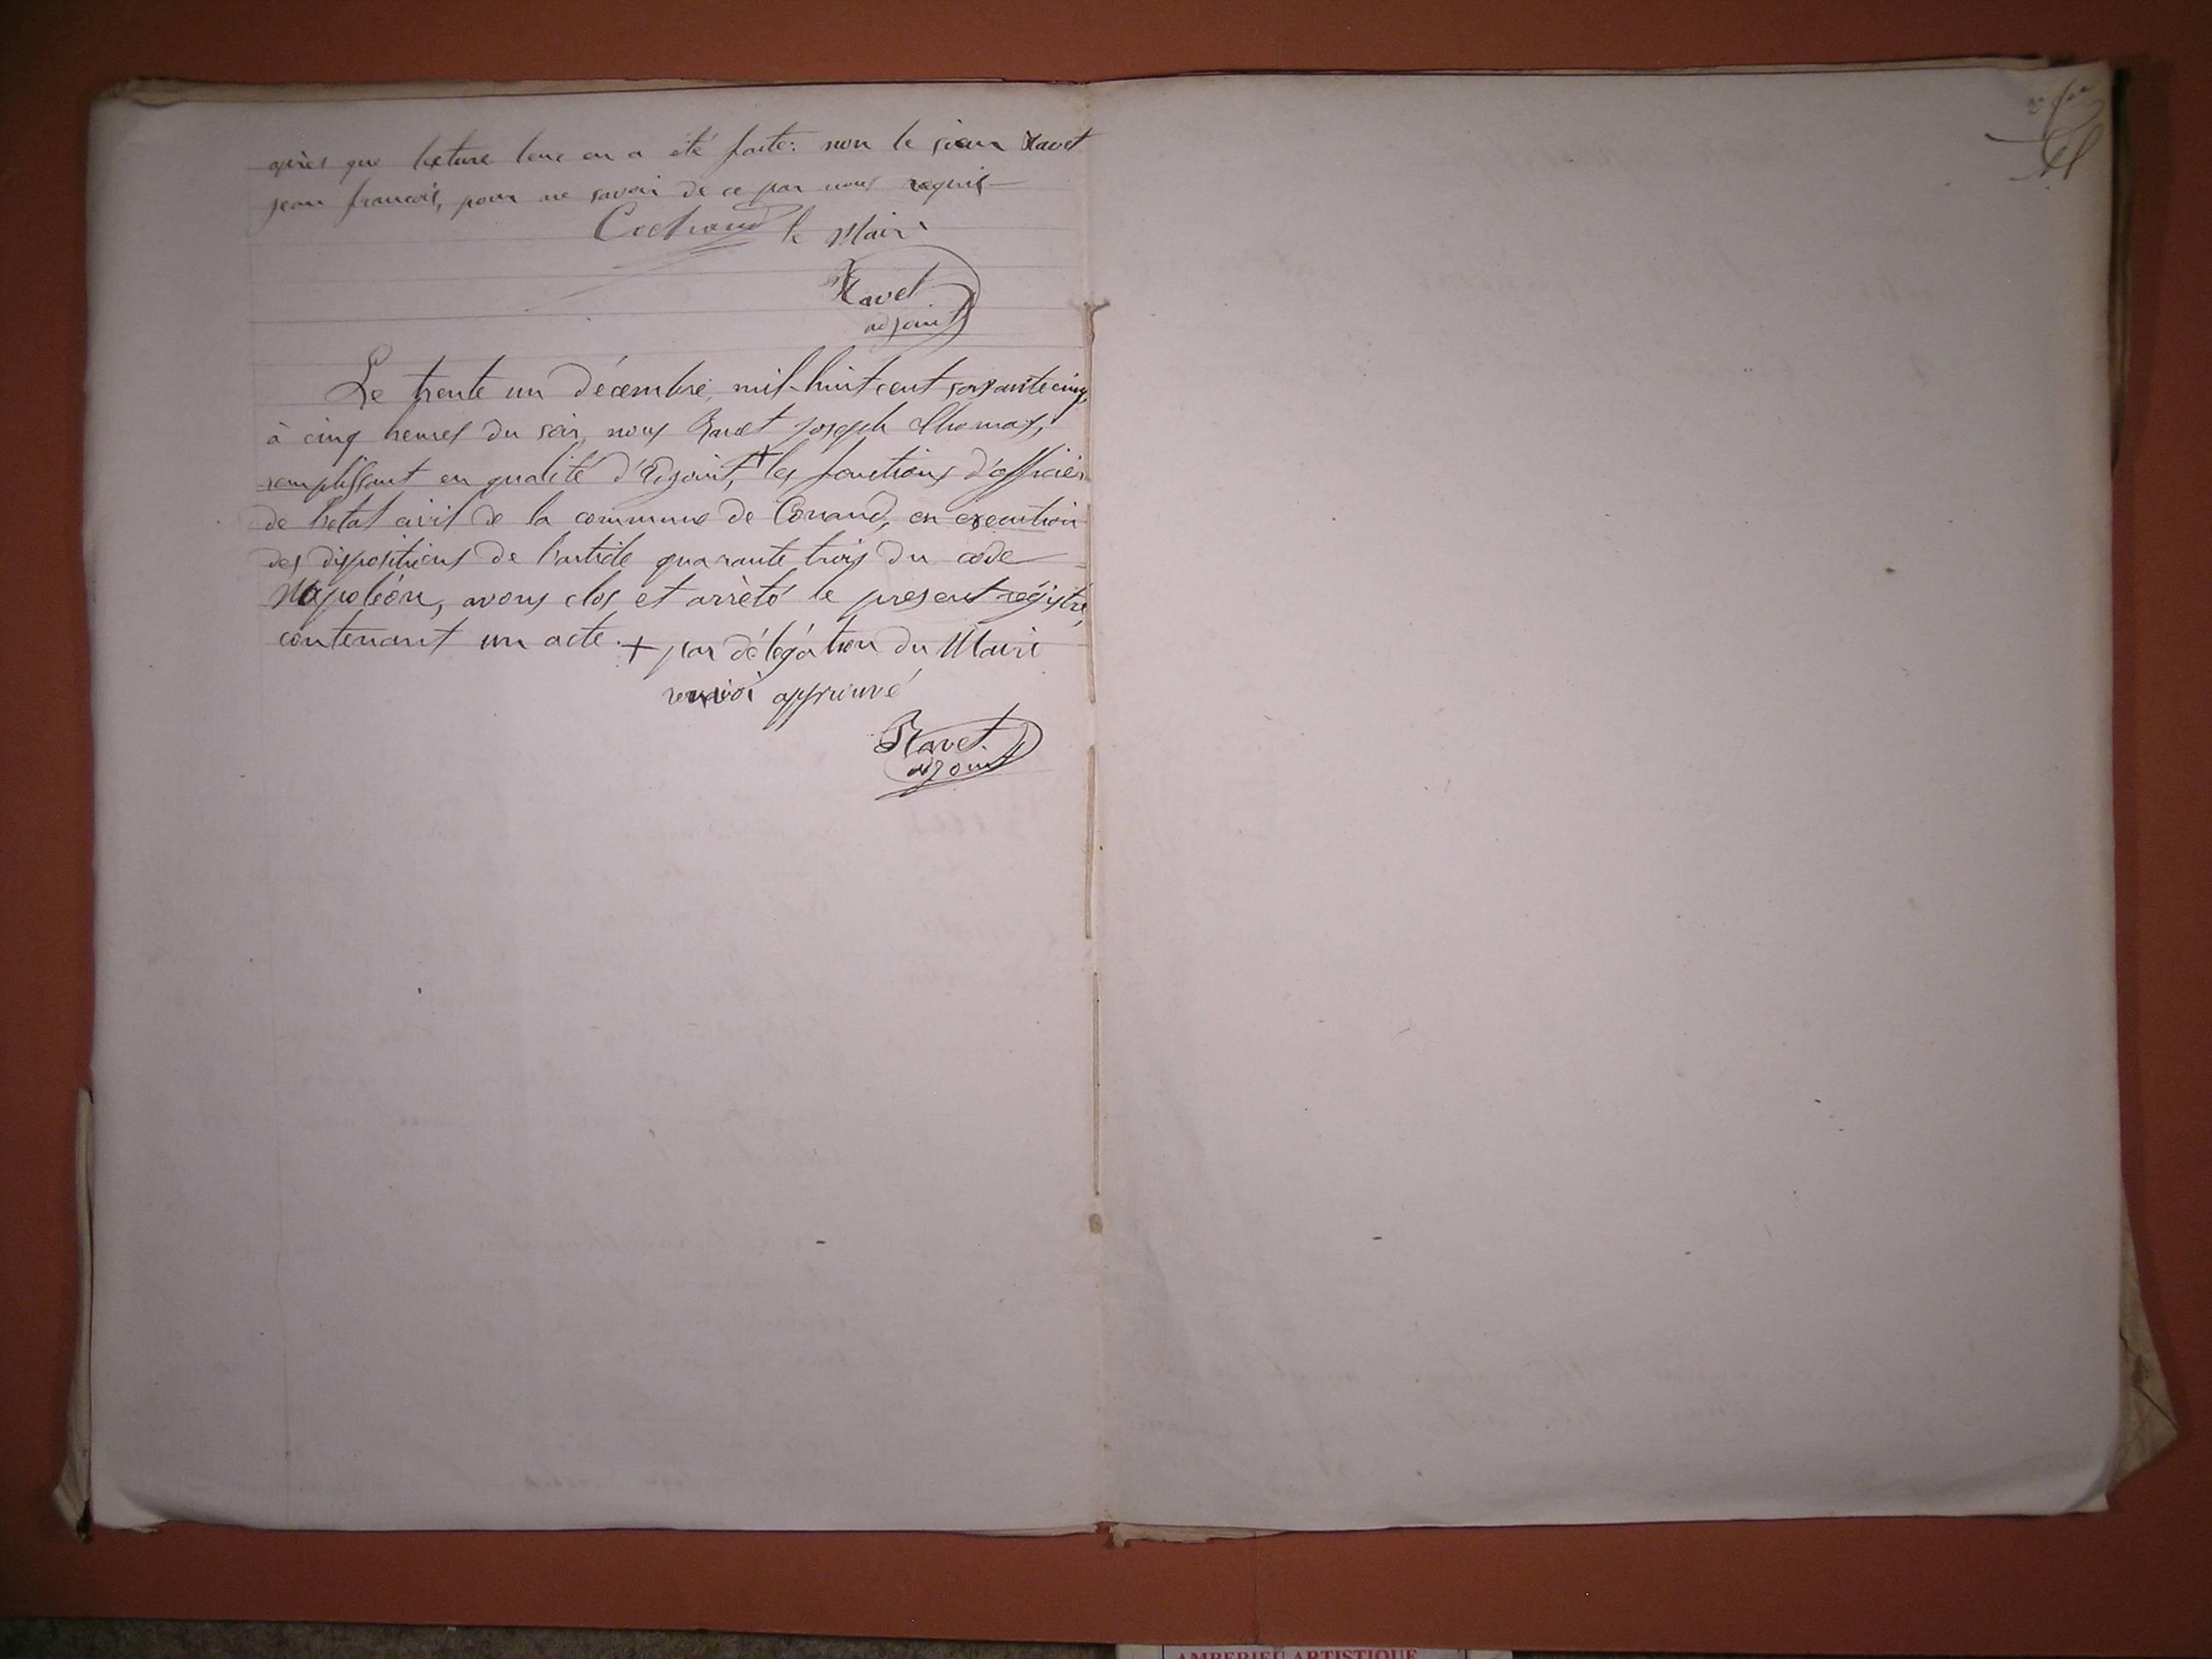 après que lecture leur en a été faite: non le sieur Ravet
jean francois, pour ne savoir de ce par nous requis
le Maire
Ravet
adjoint
Le trente un décembre, mil-huit cent soixante cinq,
à cinq heures du soir, nous Ravet joseph Thomas,
remplissant en qualité d'Adjoint, + les fonctions d'officier
de l'état civil de la commune de Conand, en exécution
des dispositions de l'article quarante trois du code
Napoléon, avons clos et arrêté le présent régistre,
contenant un acte. + par délégation du Maire
renvoi approuvé
Ravet
adjoint
AMBERIEU ARTISTIQUE